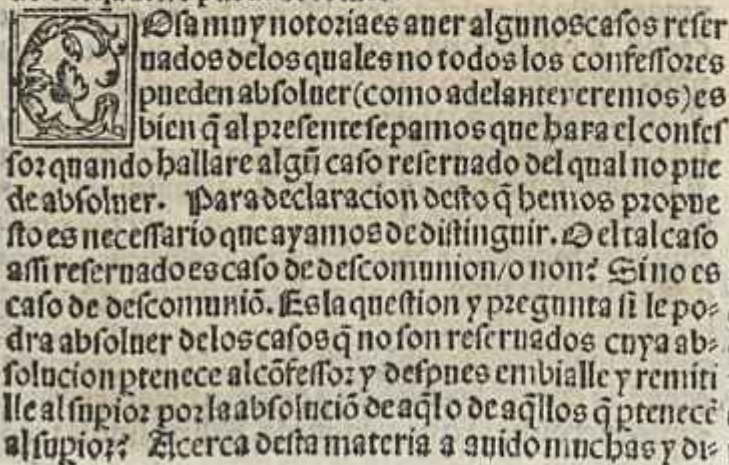 COsa muy notoria es auer algunos casos reser
uados delos quales no todos los confessores
pueden absoluer (como adelante veremos) es
bien q̃ al presente sepamos que hara el confes
sor quando hallare algũ caso reseruado del qual no pue
de absoluer. Para declaracion desto q̃ hemos propue
sto es necessario que ayamos de distinguir. O el tal caso
assi reseruado es caso de descomunion/o non? Si no es
caso de descomuniõ. Es la question y pregunta si le po⸗
dra absoluer delos casos q̃ no son reseruados cuya ab⸗
solucion ptenece al cõfessor y despues embialle y remiti
lle al supior por la absoluciõ de aq̃l o de aq̃llos q̃ ptenecẽ
al supior? Acerca desta materia a auido muchas y di⸗